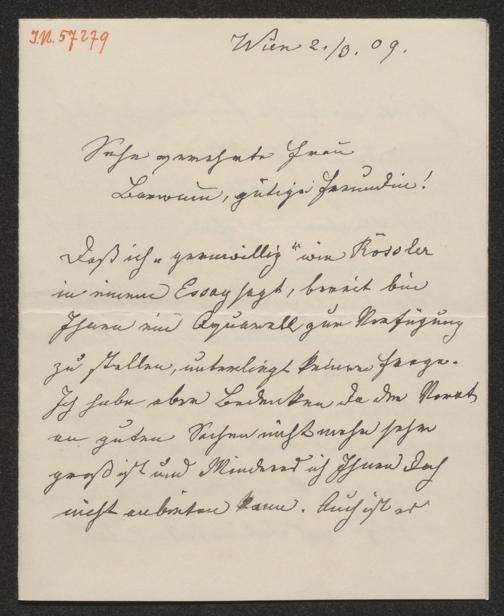 I.N. 57279
Wien 2./ . 09.
Sehr verehrte Frau
Baronin, gütige Freundin!
Daß ich „germwillig“ wie Rössler
in einem Essay sagt, bereit bin
Ihnen ein Aquarell zur Verfügung
zu stellen, unterliegt keiner Frage.
Ich habe aber Bedenken da der Vorrat
an guten Sachen nicht mehr sehr
groß ist und Minderes ich Ihnen doch
nicht anbieten kann. Auch ist es